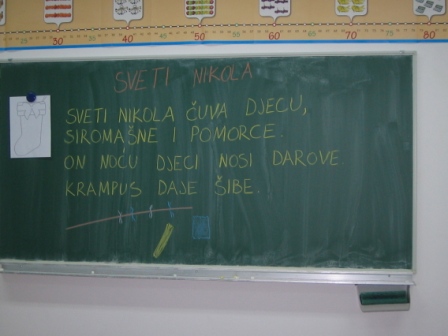 30 40 50 60 70 80
SVETI NIKOLA
SVETI NIKOLA ČUVA DJECU,
SIROMAŠNE I POMORCE.
ON NOĆU DJECI NOSI DAROVE
KRAMPUS DAJE ŠIBE.